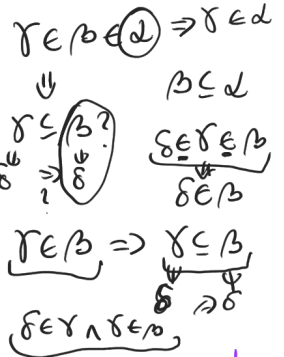 γ ∈ β ∈ α ⇒ γ ∈ α
⇓ β ⊆ α
γ ⊆ β ? δ ∈ γ ∈ β
⇓ ↓ ⇓
δ ⇒ δ δ ∈ β
?
γ ∈ β ⇒ γ ⊆ β
⇓ ψ
δ ⇒ δ
δ ∈ γ ∧ γ ∈ β